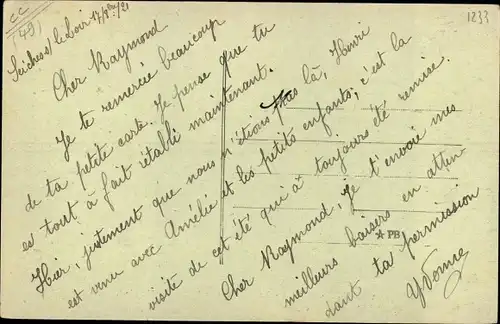 CC
(49)
1233
Seiches s/ le Loir 17/8bre/21
Cher Raymond
Je te remercie beaucoup
de ta petite carte. Je pense que tu
es tout à fait rétabli maintenant.
Hier, justement que nous n'étions pas là, Henri
est venu avec Amélie et les petits enfants, c'est la
visite de cet été qui a toujours été remise.
Cher Raymond, Je t'envoie mes
meilleurs baisers en atten
dant ta permission
Yvonne
PB